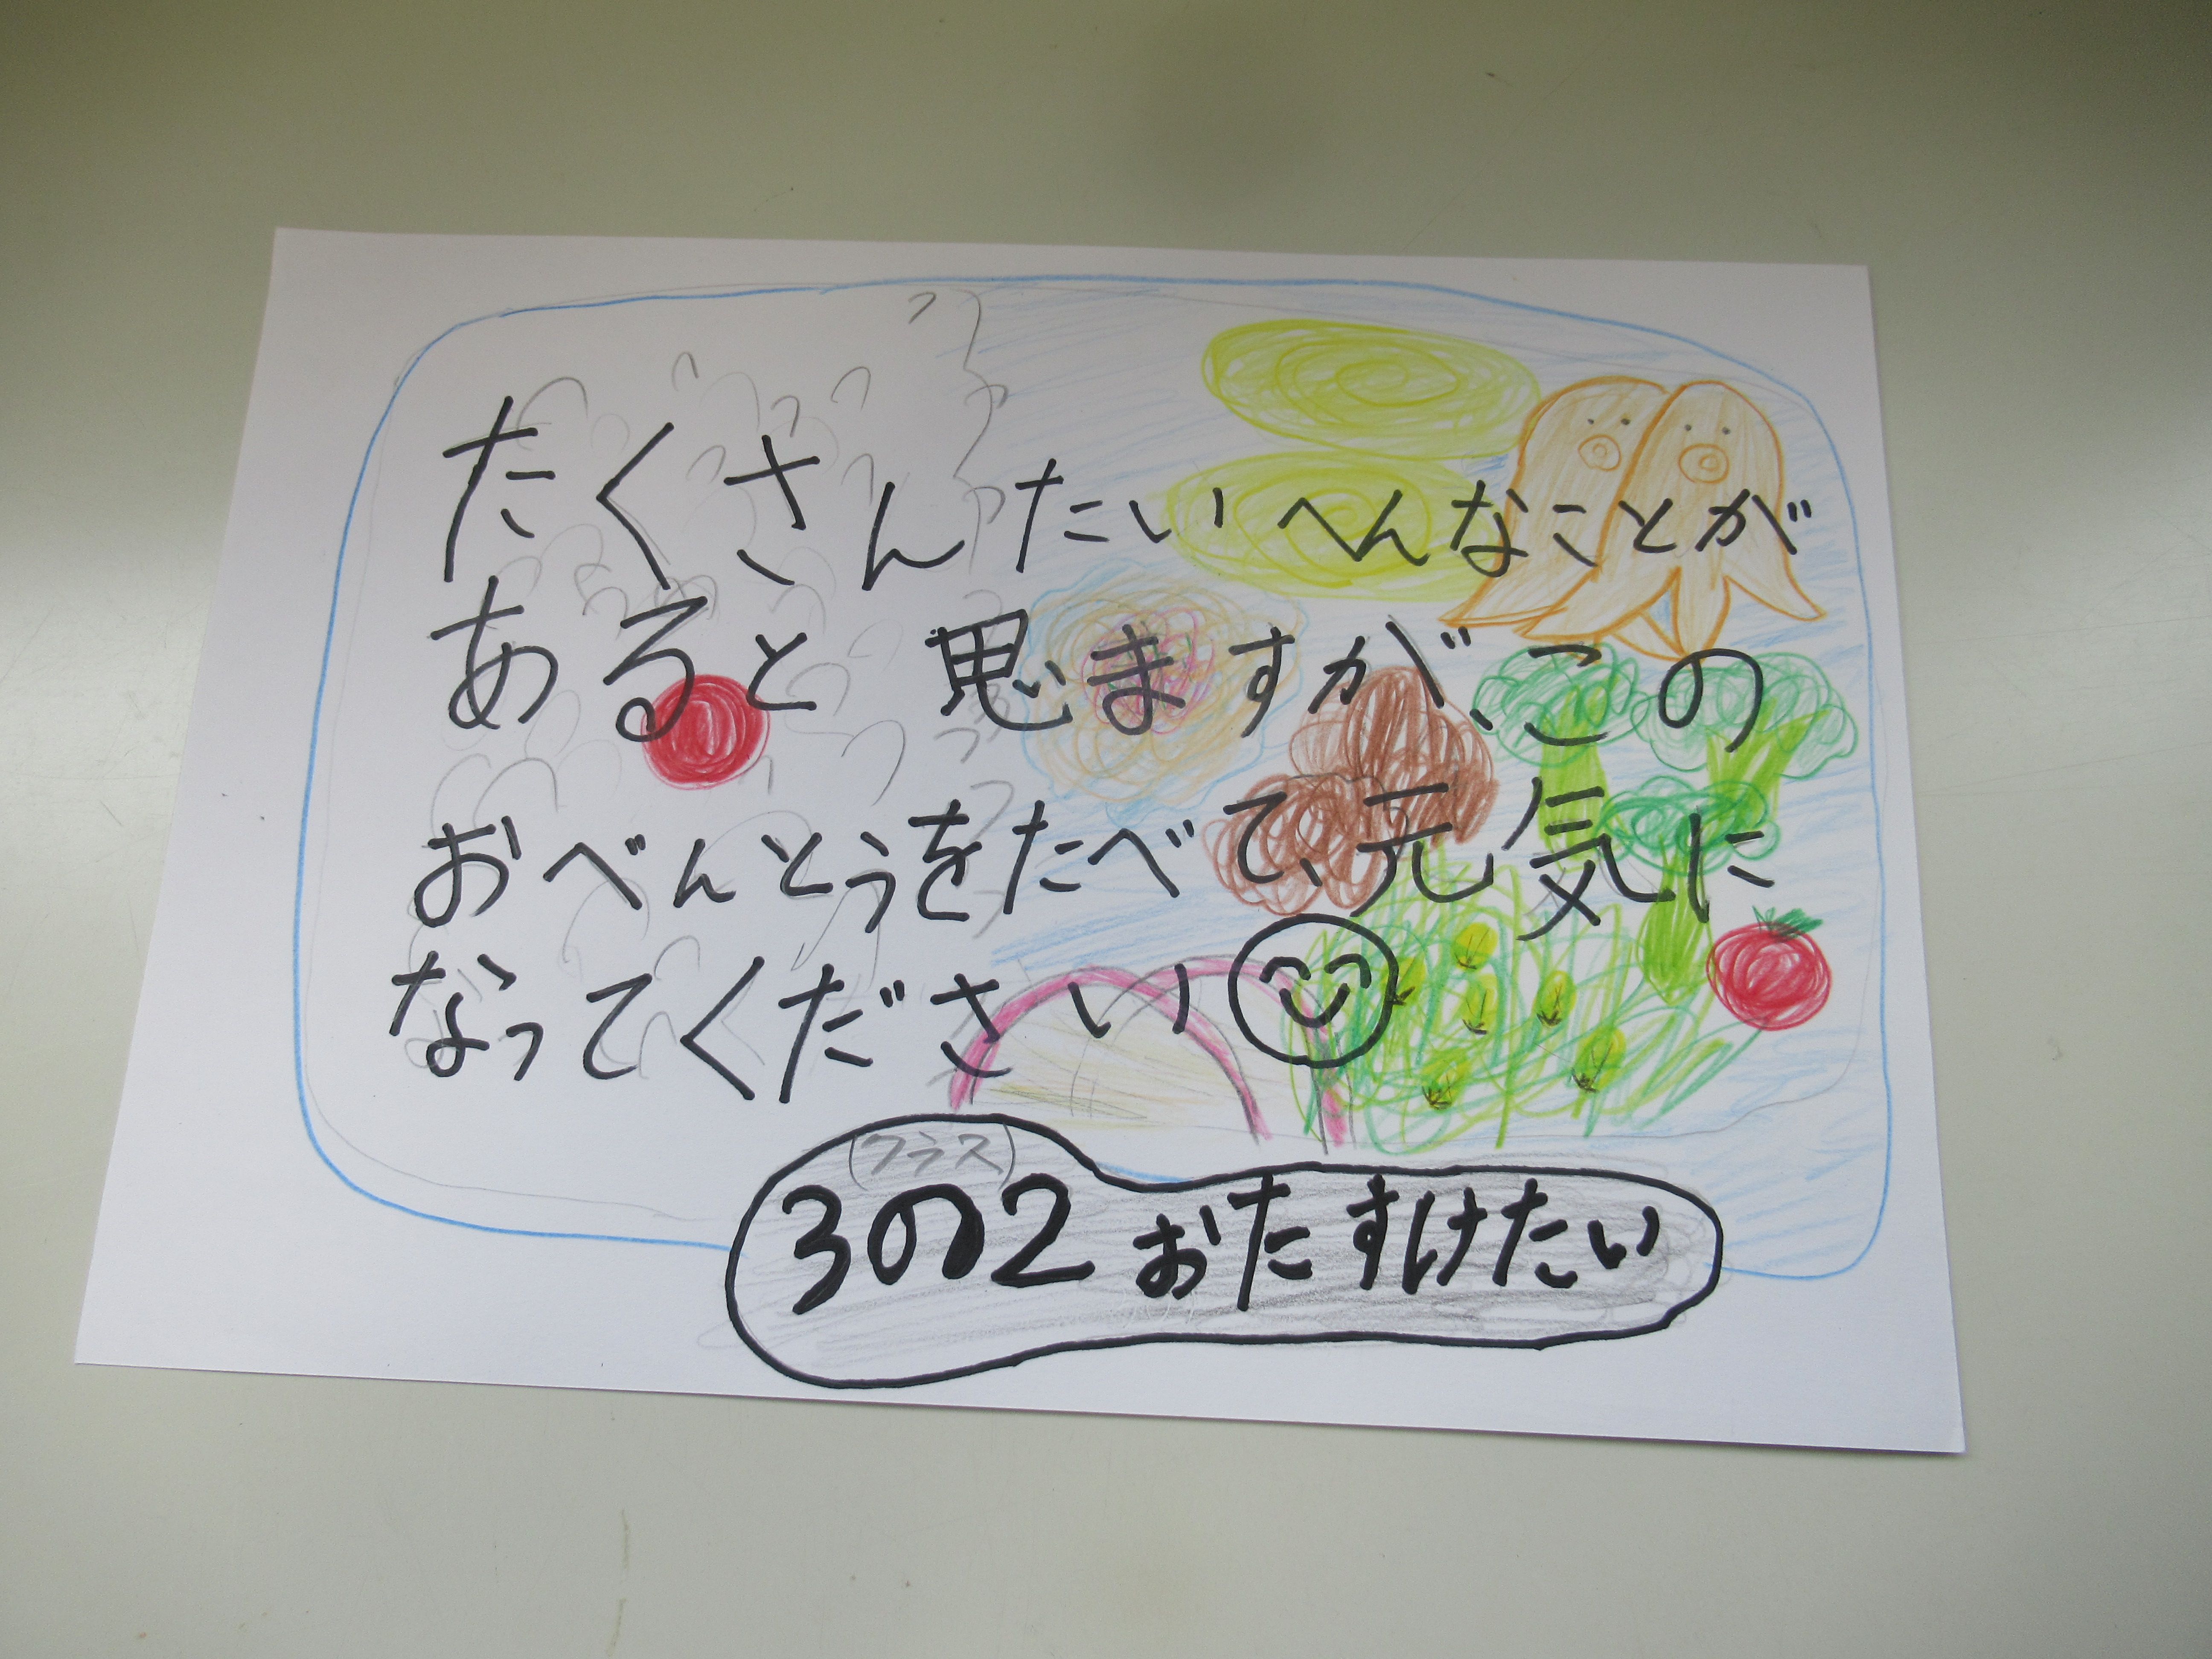 たくさんたいへんなことが
あると思いますが、この
おべんとうをたべて、元気に
なってください
(クラス)
3の2おたすけたい